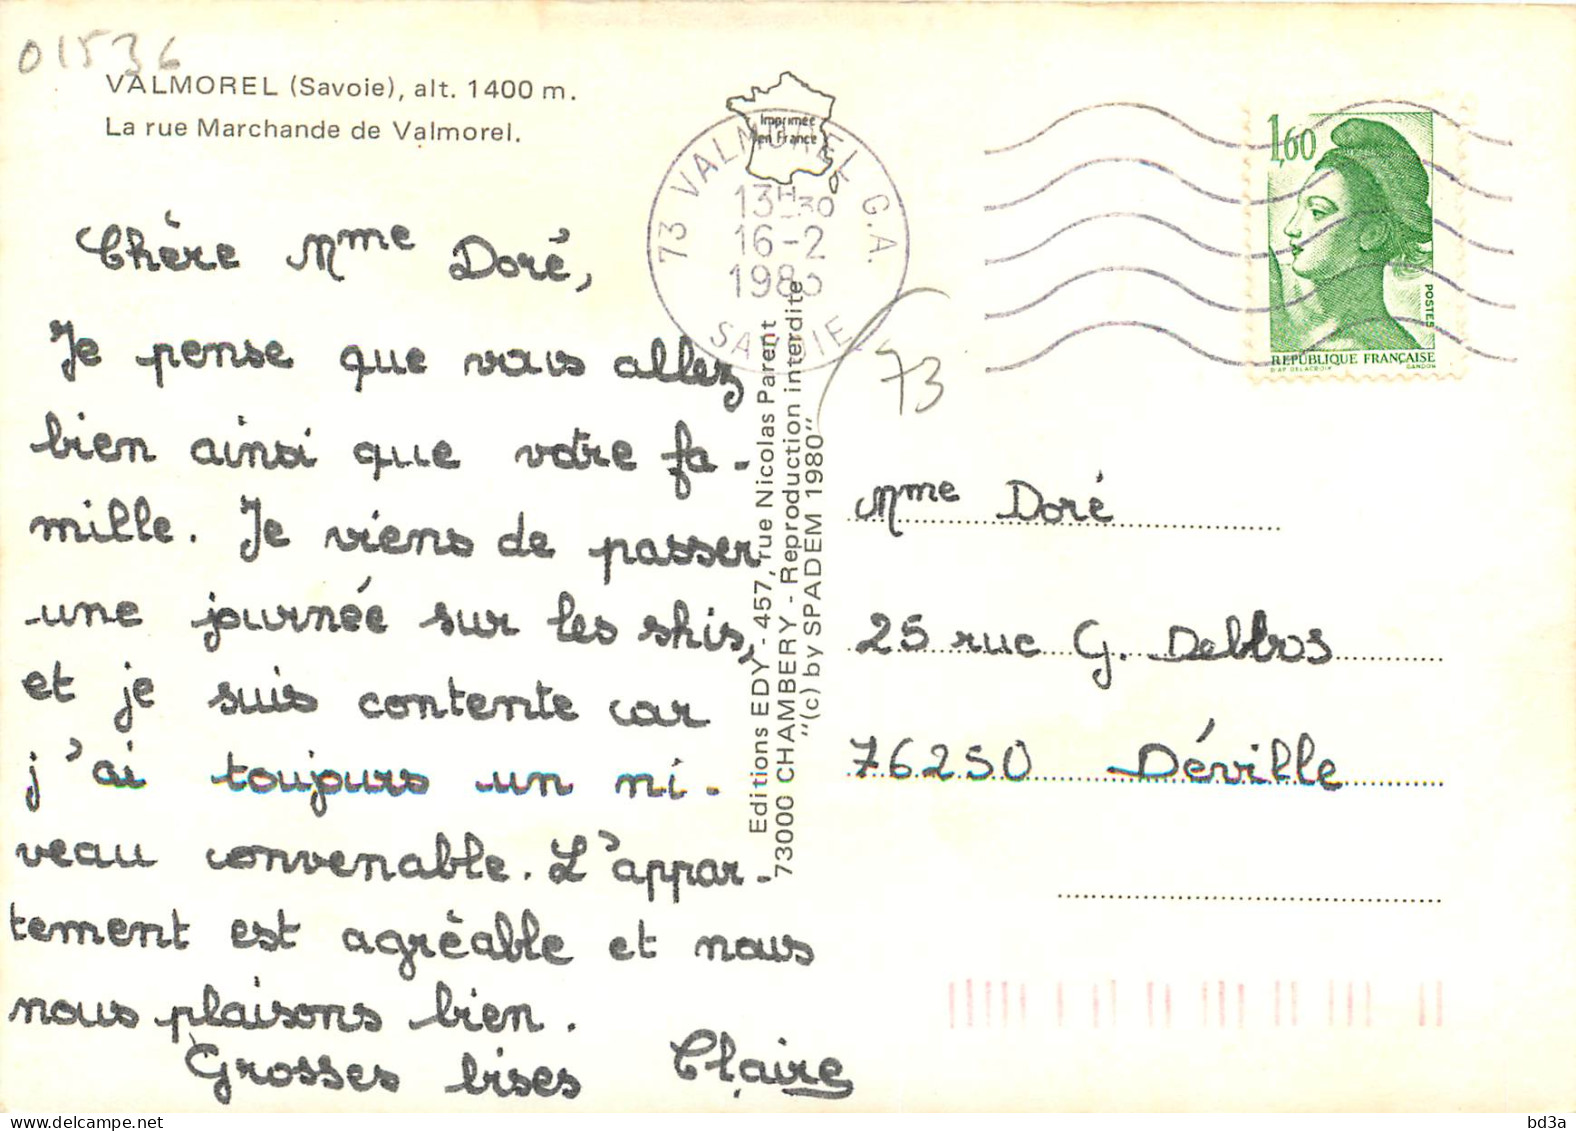 01536
VALMOREL (Savoie), alt. 1400 m.
La rue Marchande de Valmorel.
Imprimée
en France
73 VALMOREL C.A.
13H30
16-2
SAVOIE
1,60
POSTES
REPUBLIQUE FRANÇAISE
D'AP DELACROIX GANDON
73
Chère Mme Doré,
Je pense que vous allez
bien ainsi que votre fa-
mille. Je viens de passer
une journée sur les skis,
et je suis contente car
j'ai toujours un ni-
veau convenable. L'appar-
tement est agréable et nous
nous plaisons bien.
Grosses bises Claire
Editions EDY - 457, rue Nicolas Parent
73000 CHAMBERY - Reproduction interdite
"(c) by SPADEM 1980"
Mme Doré
25 rue G. Delbos
76250 Déville
bd3a